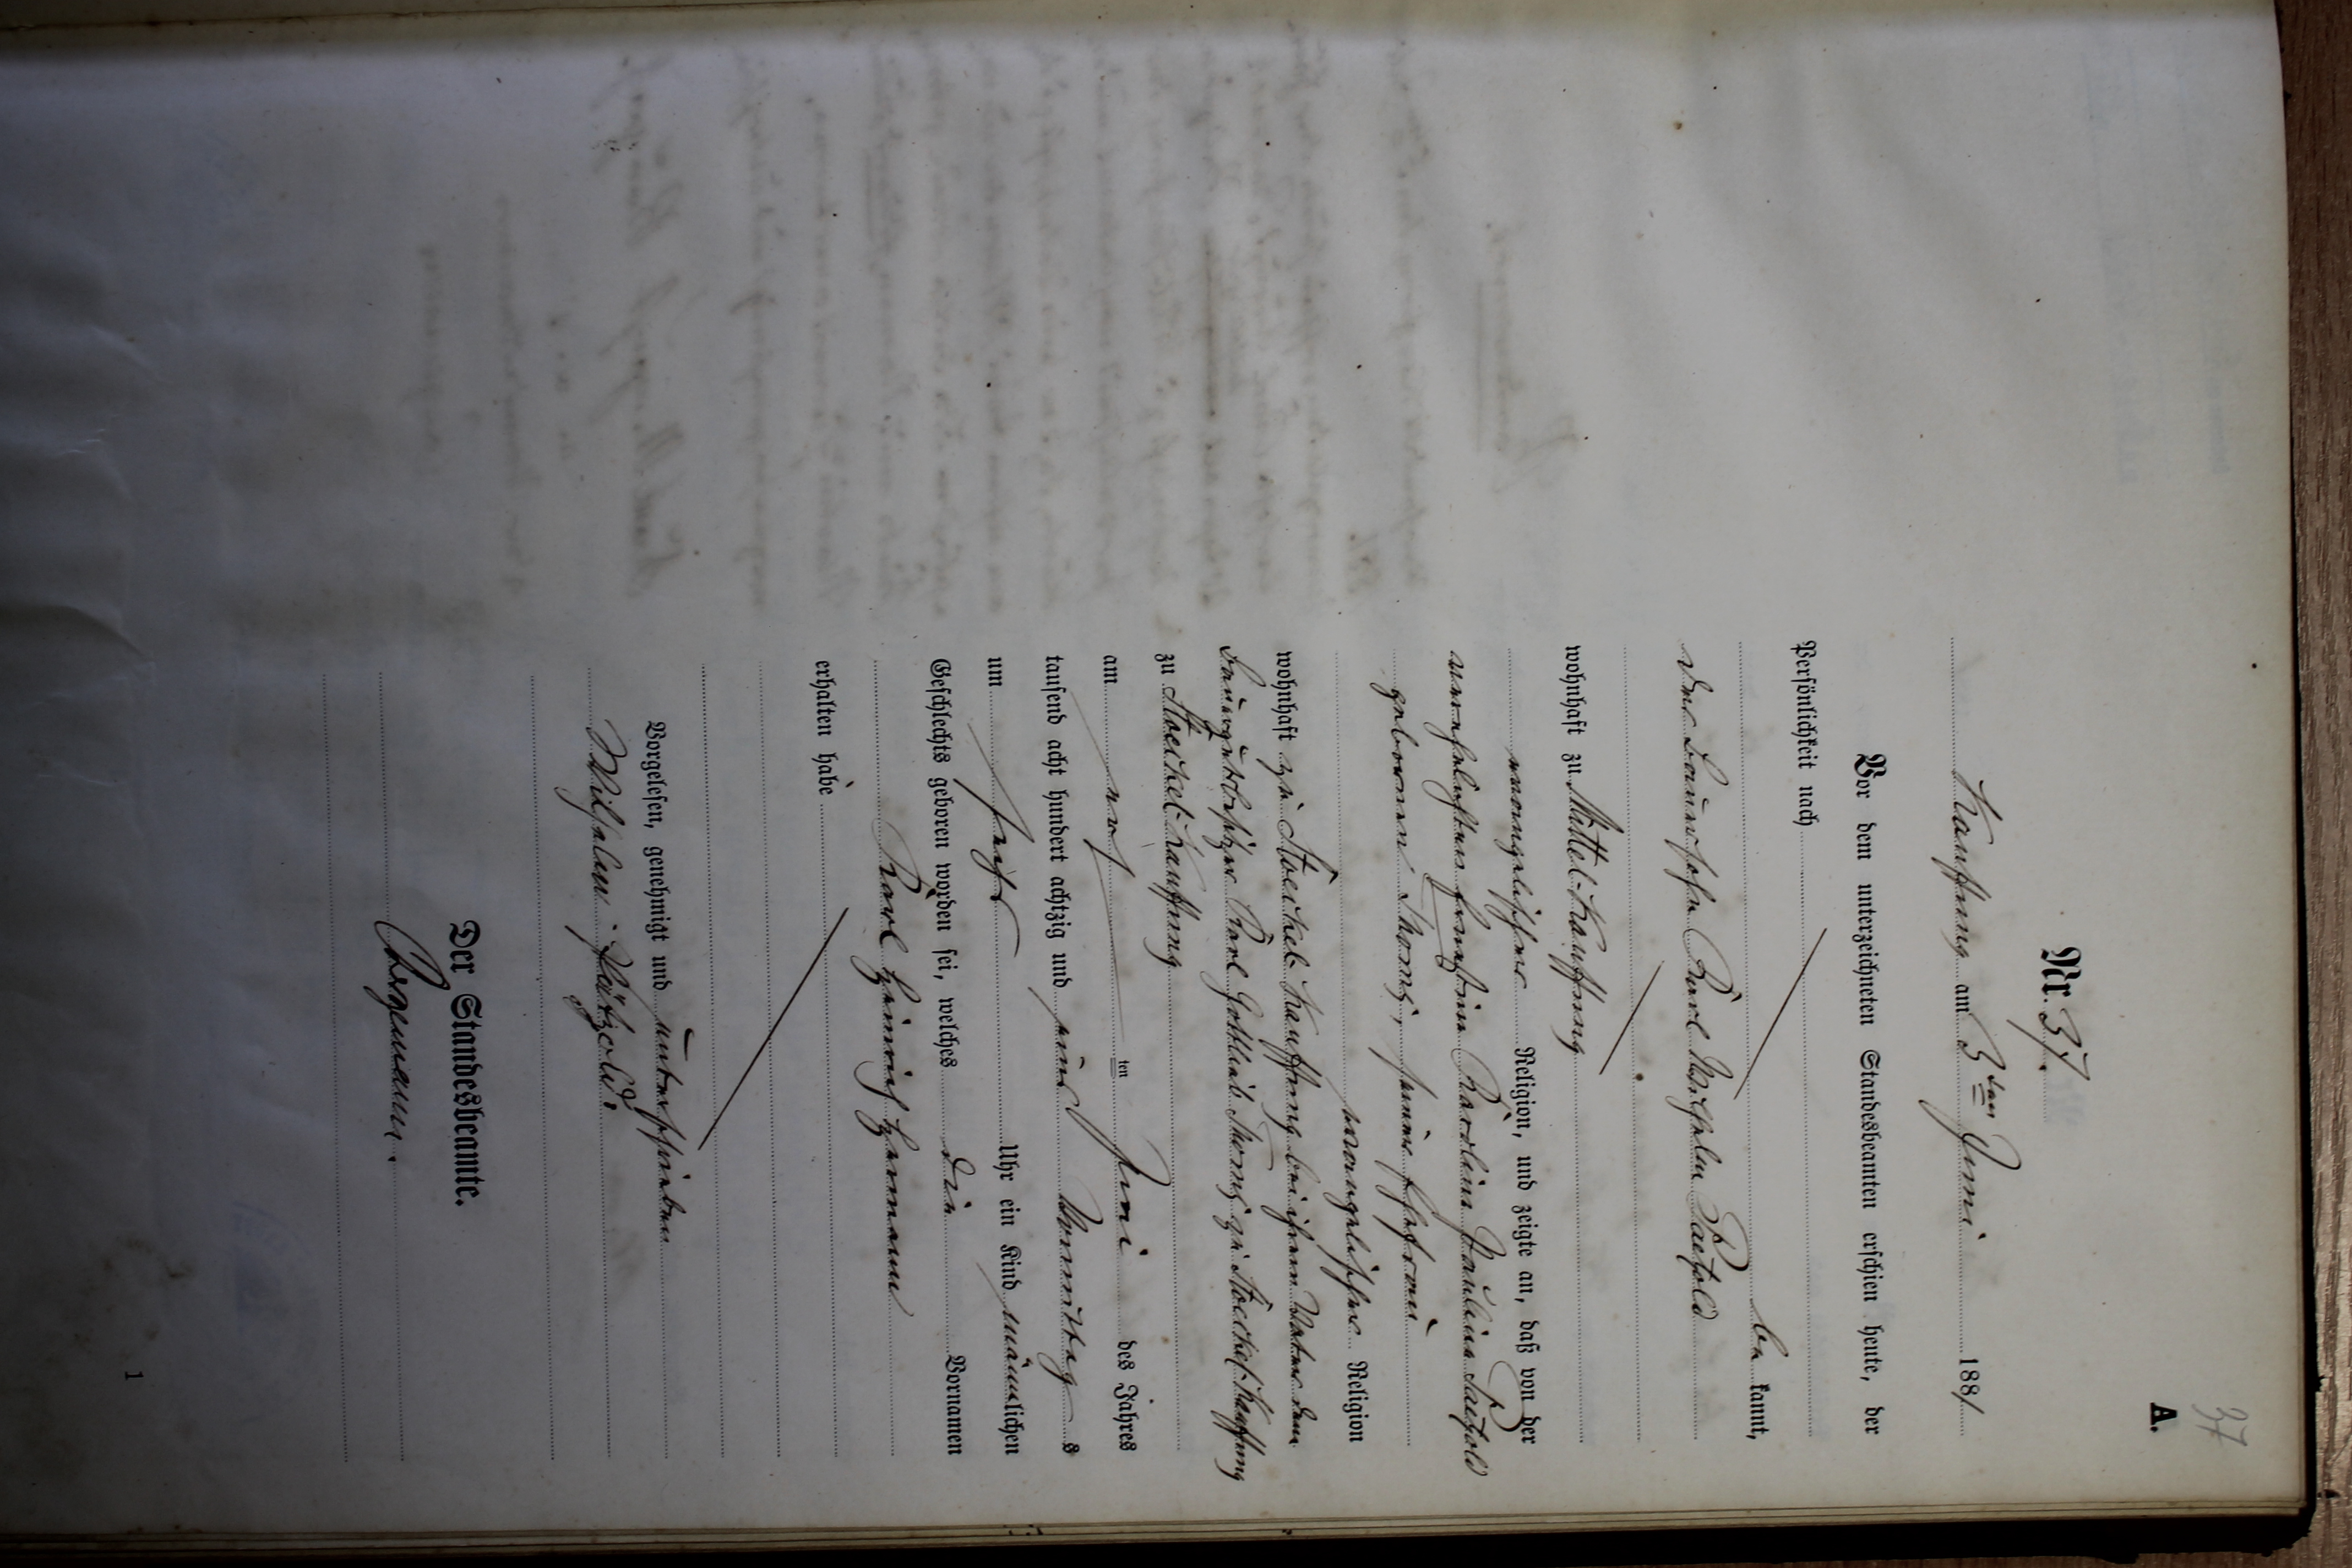 37
A.
Nr. 37.
Kauffung am 3ten Juni 1881
Vor dem unterzeichneten Standesbeamten erschien heute, der
Persönlichkeit nach
be kannt,
der Karl Wilhelm Paetzold
wohnhaft zu Mittel-Kauffung
evangelischer Religion, und zeigte an, daß von der
verehelichten Karoline Pauline Paetzold
geborenen seiner Ehefrau
evangelischer Religion
wohnhaft zu Stoeckel-Kauffung bei ihrem Vater dem
Bauergutsbesitzer Karl Gottlieb zu Stoeckel-Kauffung
zu Stoeckel-Kauffung
am ersten Juni des Jahres
tausend acht hundert achtzig und eins Vormittag s
um Uhr ein Kind männlichen
Geschlechts geboren worden sei, welches die Vornamen
Karl Heinrich Hermann
erhalten habe
Vorgelesen, genehmigt und unterschrieben
Wilhelm Pätzold.
Der Standesbeamte.
1